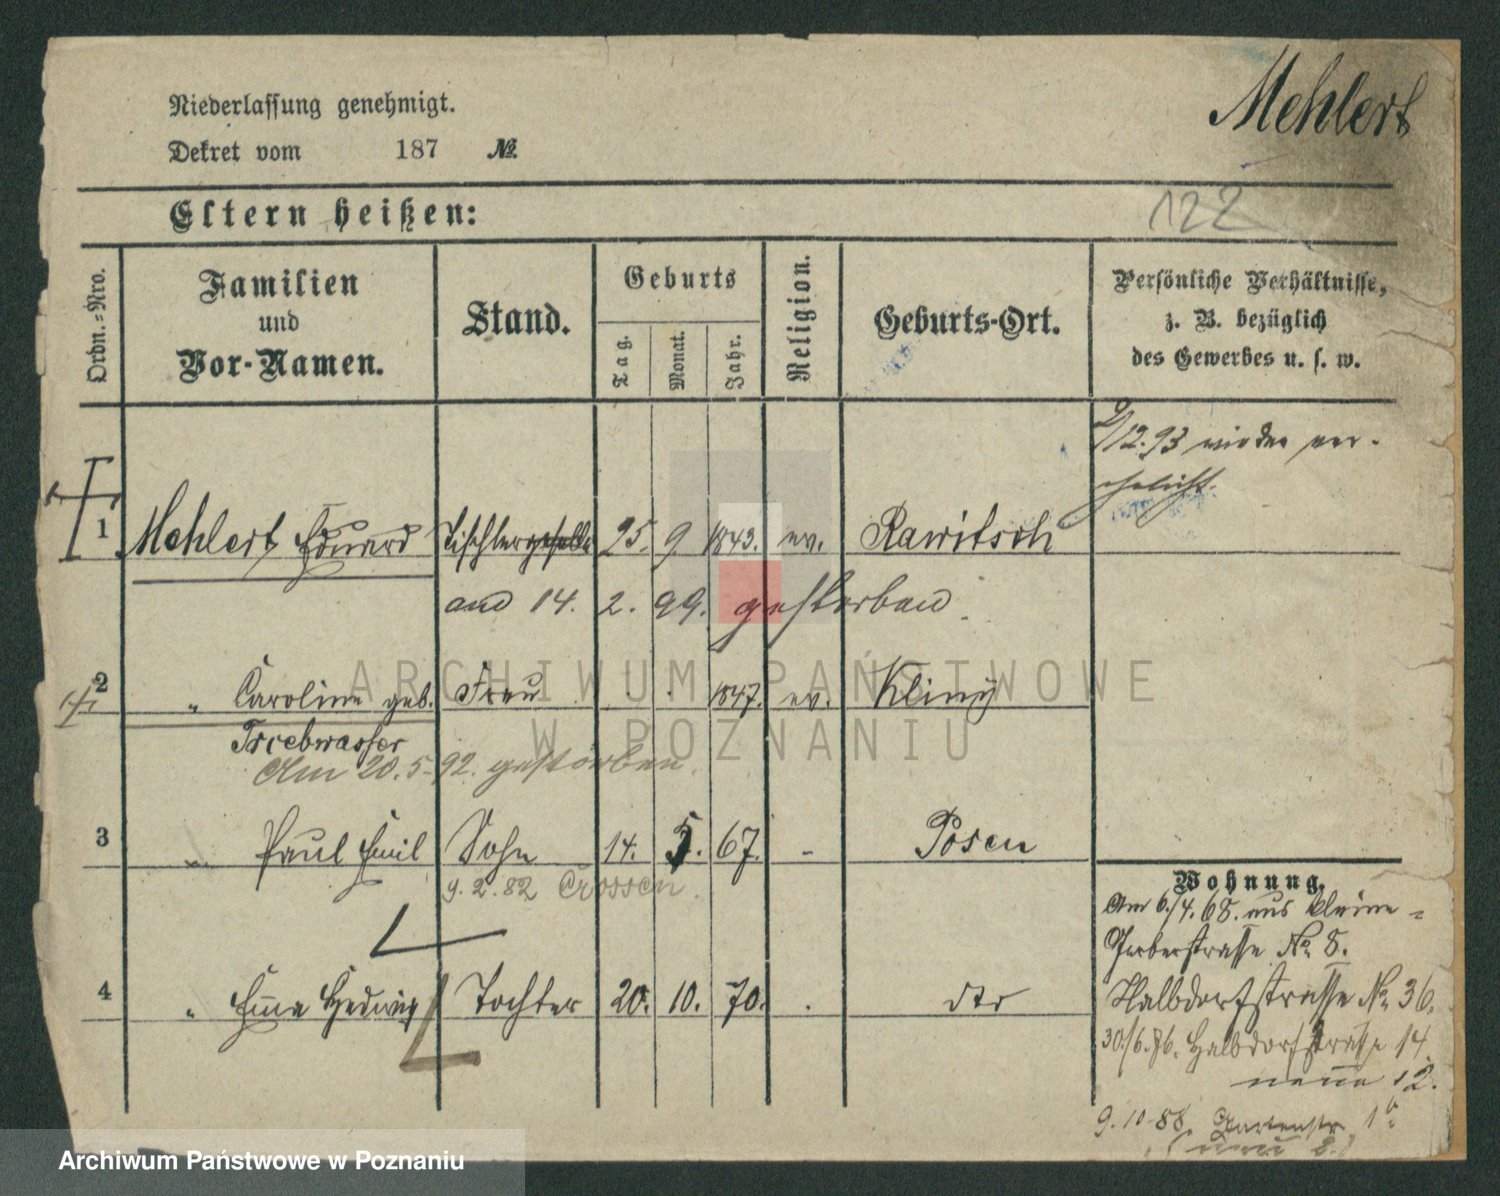 Niederlassung genehmigt.
Mehlert
Dekret vom 187 №
122
Eltern heißen:
Ordn.-Nro.
Familien und Vor-Namen.
Stand.
Geburts
Tag.
Monat.
Jahr.
Religion.
Geburts-Ort.
Persönliche Verhältnisse,
z. B. bezüglich
des Gewerbes u. s. w.
2/12.93 wieder ver-
ehelicht.
1 Mehlert Eduard Tischlergeselle 25. 9. 1843. ev. Rawitsch
am 14. 2. 99. gestorben.
2 " Caroline geb. Frau 1847. ev. Kliny
Treebwasser
Am 20.5.92. gestorben.
3 " Paul Emil Sohn 14. 5. 67. - Posen
9.2.82 Crossen.
Wohnung.
Am 6./4. 68. aus kleine
Gerberstrasse No 8.
4 " Emma Hedwig Tochter 20. 10. 70. dto
Halbdorfstrasse No 36.
30./6.76. Halbdorfstrasse 14.
neue 12.
9.10.88. Gartenstr.
neu 2.
ARCHIWUM PAŃSTWOWE
W POZNANIU
Archiwum Państwowe w Poznaniu